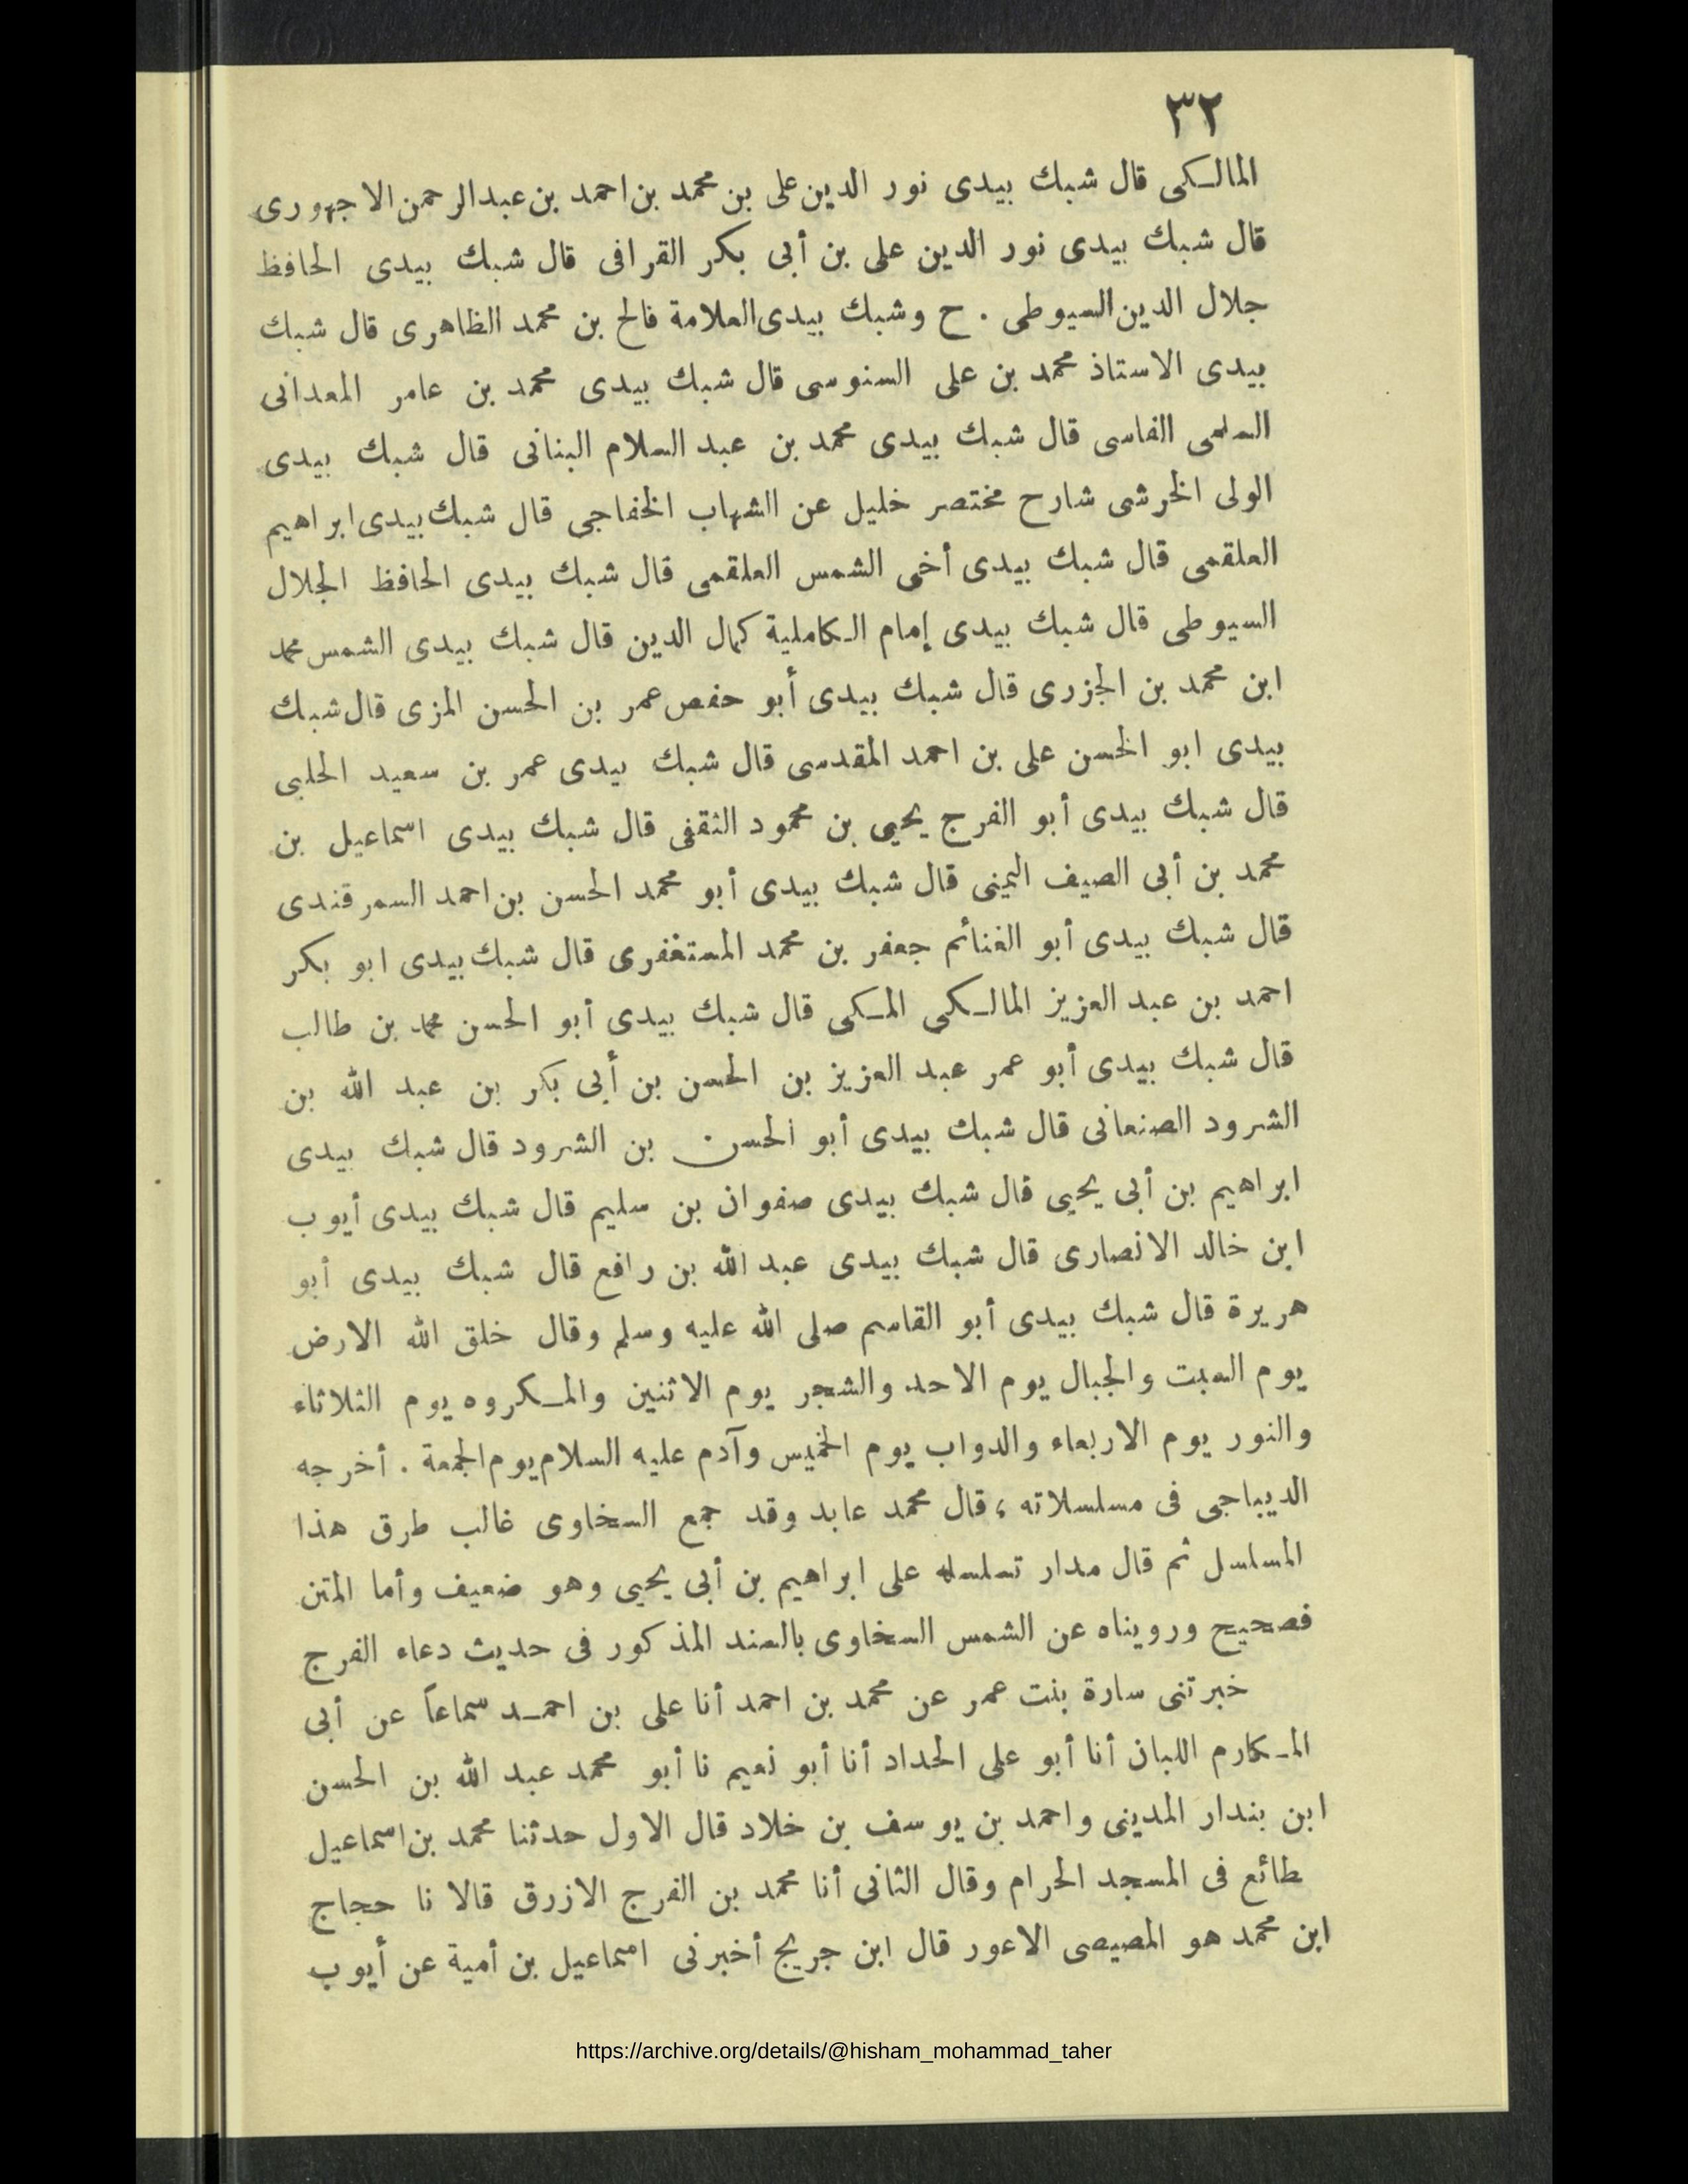 ٣٢
المالكى قال شبك بيدى نور الدين على بن محمد بن احمد بن عبد الرحمن الاجهورى
قال شبك بيدى نور الدين على بن أبى بكر القرافى قال شبك بيدى الحافظ
جلال الدين السيوطى . ح وشبك بيدى العلامة فالح بن محمد الظاهرى قال شبك
بيدى الاستاذ محمد بن على السنوسى قال شبك بيدى محمد بن عامر المعدانى
السلمى الفاسى قال شبك بيدى محمد بن عبد السلام البنانى قال شبك بيدى
الولى الخرشى شارح مختصر خليل عن الشهاب الخفاجى قال شبك بيدى ابراهيم
العلقمى قال شبك بيدى أخى الشمس العلقمى قال شبك بيدى الحافظ الجلال
السيوطى قال شبك بيدى إمام الكاملية كمال الدين قال شبك بيدى الشمس محمد
ابن محمد بن الجزرى قال شبك بيدى أبو حفص عمر بن الحسن المزى قال شبك
بيدى ابو الحسن على بن احمد المقدسى قال شبك بيدى عمر بن سعيد الحلبى
قال شبك بيدى أبو الفرج يحيى بن محمود الثقفى قال شبك بيدى اسماعيل بن
محمد بن أبى الصيف اليمنى قال شبك بيدى أبو محمد الحسن بن احمد السمرقندى
قال شبك بيدى أبو الغنائم جعفر بن محمد المستغفرى قال شبك بيدى ابو بكر
احمد بن عبد العزيز المالكى المكى قال شبك بيدى أبو الحسن محمد بن طالب
قال شبك بيدى أبو عمر عبد العزيز بن الحسن بن أبى بكر بن عبد الله بن
الشرود الصنعانى قال شبك بيدى أبو الحسن بن الشرود قال شبك بيدى
ابراهيم بن أبى يحيى قال شبك بيدى صفوان بن سليم قال شبك بيدى أيوب
ابن خالد الانصارى قال شبك بيدى عبد الله بن رافع قال شبك بيدى أبو
هريرة قال شبك بيدى أبو القاسم صلى الله عليه وسلم وقال خلق الله الارض
يوم السبت والجبال يوم الاحد والشجر يوم الاثنين والمكروه يوم الثلاثاء
والنور يوم الاربعاء والدواب يوم الخميس وآدم عليه السلام يوم الجمعة . أخرجه
الديباجى فى مسلسلاته ، قال محمد عابد وقد جمع السخاوى غالب طرق هذا
المسلسل ثم قال مدار تسلسله على ابراهيم بن أبى يحيى وهو ضعيف وأما المتن
فصحيح ورويناه عن الشمس السخاوى بالسند المذكور فى حديث دعاء الفرج
خبرتنى سارة بنت عمر عن محمد بن احمد أنا على بن احمد سماعاً عن أبى
المكارم اللبان أنا أبو على الحداد أنا أبو نعيم نا أبو محمد عبد الله بن الحسن
ابن بندار المدينى واحمد بن يوسف بن خلاد قال الاول حدثنا محمد بن اسماعيل
طائع فى المسجد الحرام وقال الثانى أنا محمد بن الفرج الازرق قالا نا حجاج
ابن محمد هو المصيصى الاعور قال ابن جريج أخبرنى اسماعيل بن أمية عن أيوب
https://archive.org/details/@hisham_mohammad_taher